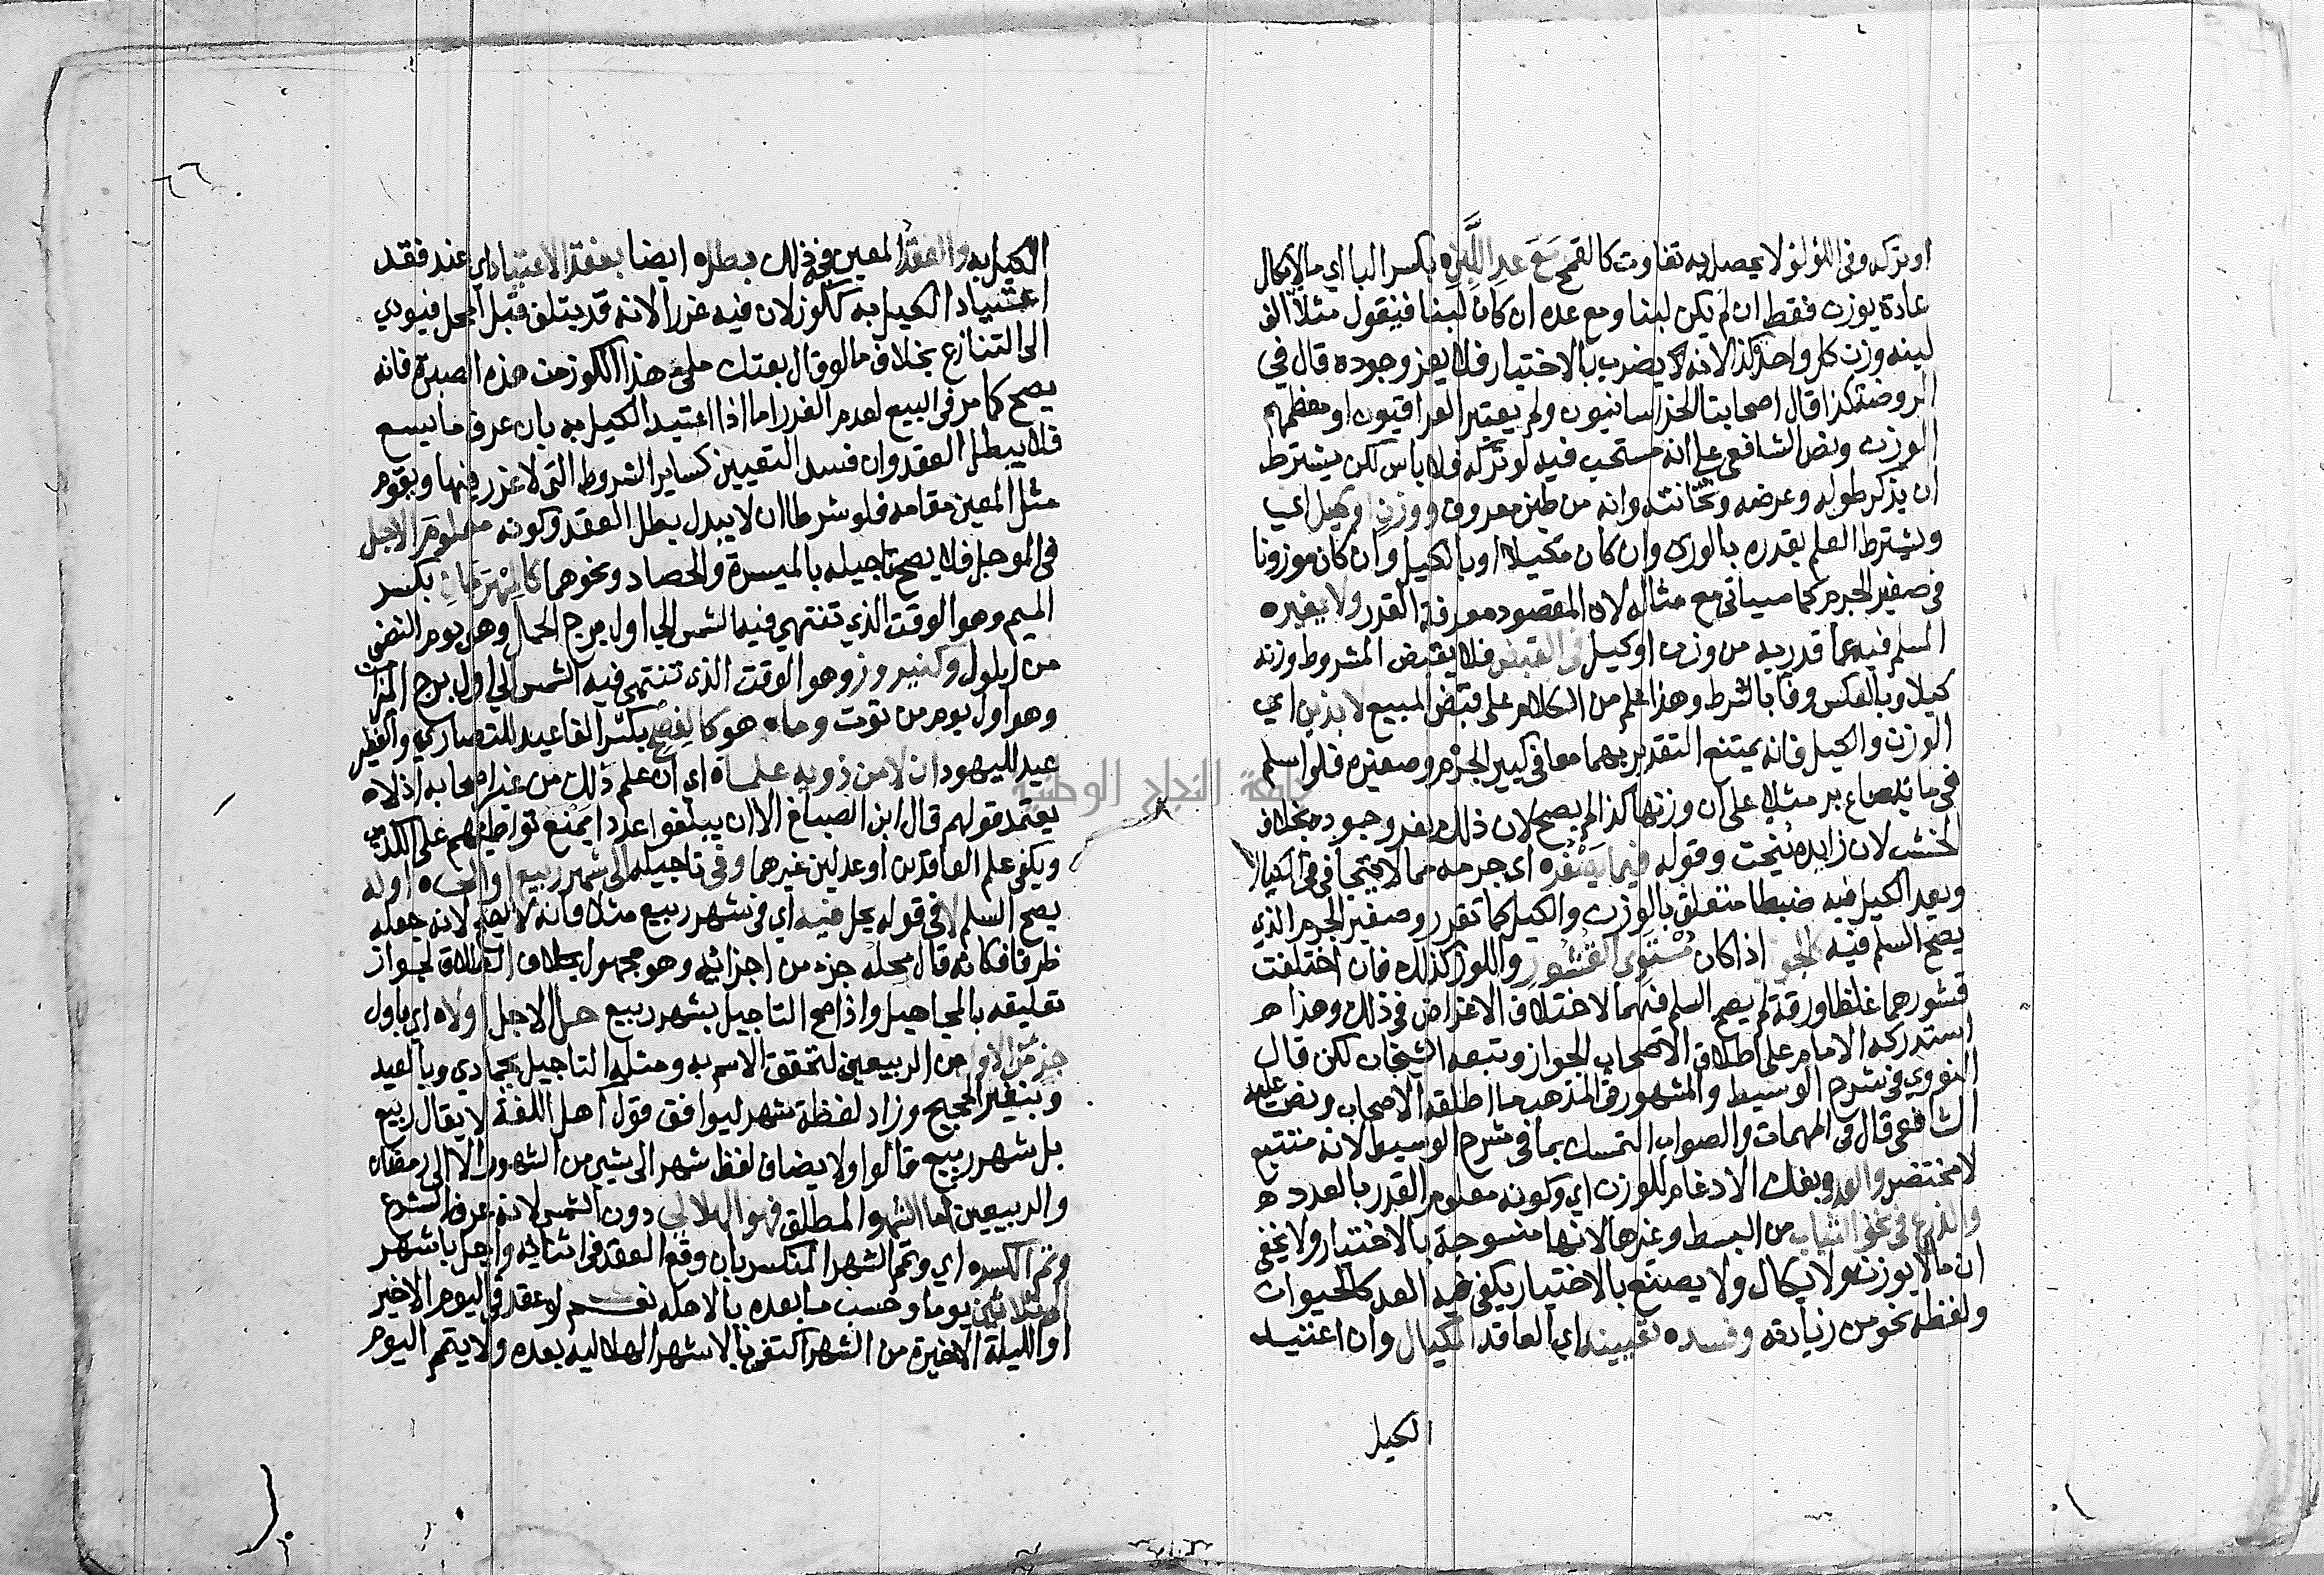 او بزكه وفى اللؤلؤ لا يحصل به تفاوت كالقمح مَعَ عدِ اللَّبِنِ بكسر البا اي ما لا يكال
عادة يوزن فقط ان لم يكن لبنا ومع عده ان كان لبنا فيقول مثلا الف
لبنه وزن كل واحدة كذا لانه لا يضرب بالاختيار فلا يعز وجوده قال في
الروضة كذا قال اصحابنا الخراسانيون ولم يعتبر العراقيون او معظمهم
الوزن ونص الشافعى على انه مستحب فيه لو تركه فلا باس لكن يشترط
ان يذكر طوله وعرضه وثخانته وانه من طين معروف ووزن او كيل اي
ويشترط العلم بقدره بالوزن وان كان مكيلا او بالكيل وان كان موزونا
فى صغير الجرم كما سياتى مع مثاله لان المقصود معرفة القدر ولا يغيره
المسلم فيه عما قدر به من وزن او كيل فى القبض فلا يقبض المشروط وزنه
كيلا وبالعكس وفا بالشرط وهذا علم من الكلام على قبض المبيع لا بذين اي
الوزن والكيل فانه يمتنع التقدير بهما معا فى كبير الجرم وصغيره فلو اسلم
فى مائة صاع بر مثلا على ان وزنها كذا لم يصح لان ذلك يعز وجوده بخلاف
الخشب لان زايده ينحت وقوله فيما يَصْغُرُ اى جرمه مما لا يتجافى فى المكيال
ويعد الكيل فيه ضبطا متعلق بالوزن والكيل كما تقرر وصغير الجرم الذي
يصح السلم فيه كالجوز اذا كان مُسْتَوِي القُشُورِ واللوز كذلك فان اختلفت
قشورهما غلظا ورقة لم يصح السلم فيهما لاختلاف الاغراض فى ذلك وهذا
استدركه الامام على اطلاق الاصحاب الجواز وتبعه الشيخان لكن قال
النووي فى شرح الوسيط والمشهور فى المذهب ما اطلقه الاصحاب ونص عليه
الشافعى قال فى المهمات والصواب التمسك بما فى شرح الوسيط لانه متتبع
لا مختصر والعد وبفك الادغام للوزن اي وكونه معلوم القدر بالعدد
والذرع فى نحو الثياب من البسط وغيرها لانها منسوجة بالاختيار ولا يخفى
ان ما لا يوزن ولا يكال ولا يصنع بالاختيار يكفى فيه العد كالحيوان
ولفظة نحو من زيادته وفسد تعيينه اي العاقد المكيال وان اعتيد
الكيل
٦٦
الكيل به والعقدُ المعين فى ذلك بطل ايضا بفقد الاعتياد اي عند فقد
اعتياد الكيل به ككوز لان فيه غررا لانه قد يتلف قبل المحل فيودي
الى التنازع بخلاف ما لو قال بعتك ملئ هذا الكوز من هذه الصبرة فانه
يصح كما مر فى البيع لعدم الغرر اما اذا اعتيد الكيل به بان عرف ما يسع
فلا يبطل العقد وان فسد التعيين كساير الشروط التى لا غرر فيها ويقوم
مثل المعين مقامه فلو شرطا ان لا يبدل بطل العقد وكونه معلومَ الاجل
فى الموجل فلا يصح تاجيله بالميسرة والحصاد ونحوهما كالمِهْرَجَانِ بكسر
الميم وهو الوقت الذي تنتهي فيه الشمس الى اول برج الحمل وهو يوم النصف
من ايلول وكنيروز وهو الوقت الذى تنتهى فيه الشمس الى اول برج الميزان
وهو اول يوم من توت وماه هو كالفِصْحِ بكسر الفا عيد للنصارى والفطير
عيد لليهود ان لا من ذويه علماه اي ان علم ذلك من غير اصحابه اذ لا
يعتمد قولهم قال ابن الصباغ الا ان يبلغوا عددا يمنع تواطيهم على الكذب
ويكفى علم العاقدين او عدلين غيرهما وفى تاجيله الى شهر ربيع او الى اوله
يصح السلم لا فى قوله يحل فيه اي فى شهر ربيع مثلا فانه لا يصح لانه جعله
ظرفا فكانه قال محله جزء من اجزائه وهو مجهول بخلاف الطلاق لجواز
تعليقه بالمجاهيل واذا صح التاجيل بشهر ربيع حل الاجل اولاه اي باول
جزءٍ من الاول من الربيعين لتحقق الاسم به ومثله التاجيل بجمادي وبالعيد
وبنفير الحجيج وزاد لفظة شهر ليوافق قول اهل اللغة لا يقال ربيع
بل شهر ربيع قالوا ولا يضاف لفظ شهر الى شيي من الشهور الا الى رمضان
والربيعين اما الشهر المطلق فهو الهلالي دون الشمس لانه عرف الشرع
وتم الكسر اي وتمم الشهر المنكسر بان وقع العقد فى اثنائه واجل باشهر
ثلاثين يوما وحسب ما بعده بالاهله نعم لو عقد فى اليوم الاخير
او الليلة الاخيرة من الشهر اكتفى بالاشهر الهلاليه بعده ولا يتم اليوم
جامعة النجاح الوطنية